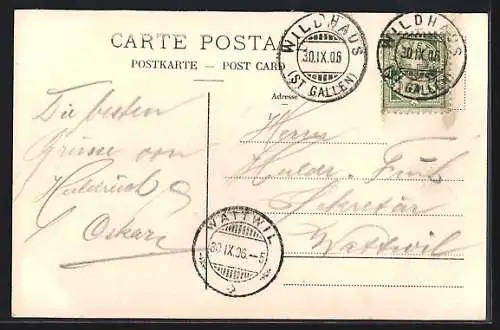 CARTE POSTA
POSTKARTE — POST CARD
WILDHAUS
30.IX.06
(ST. GALLEN)
WILDHAUS
30.IX.06
(ST. GALLEN)
Adresse
Die besten
Grüsse von
Oskar
Herrn
Sekretär
Wattwil
WATTWIL
30.IX.06.-5